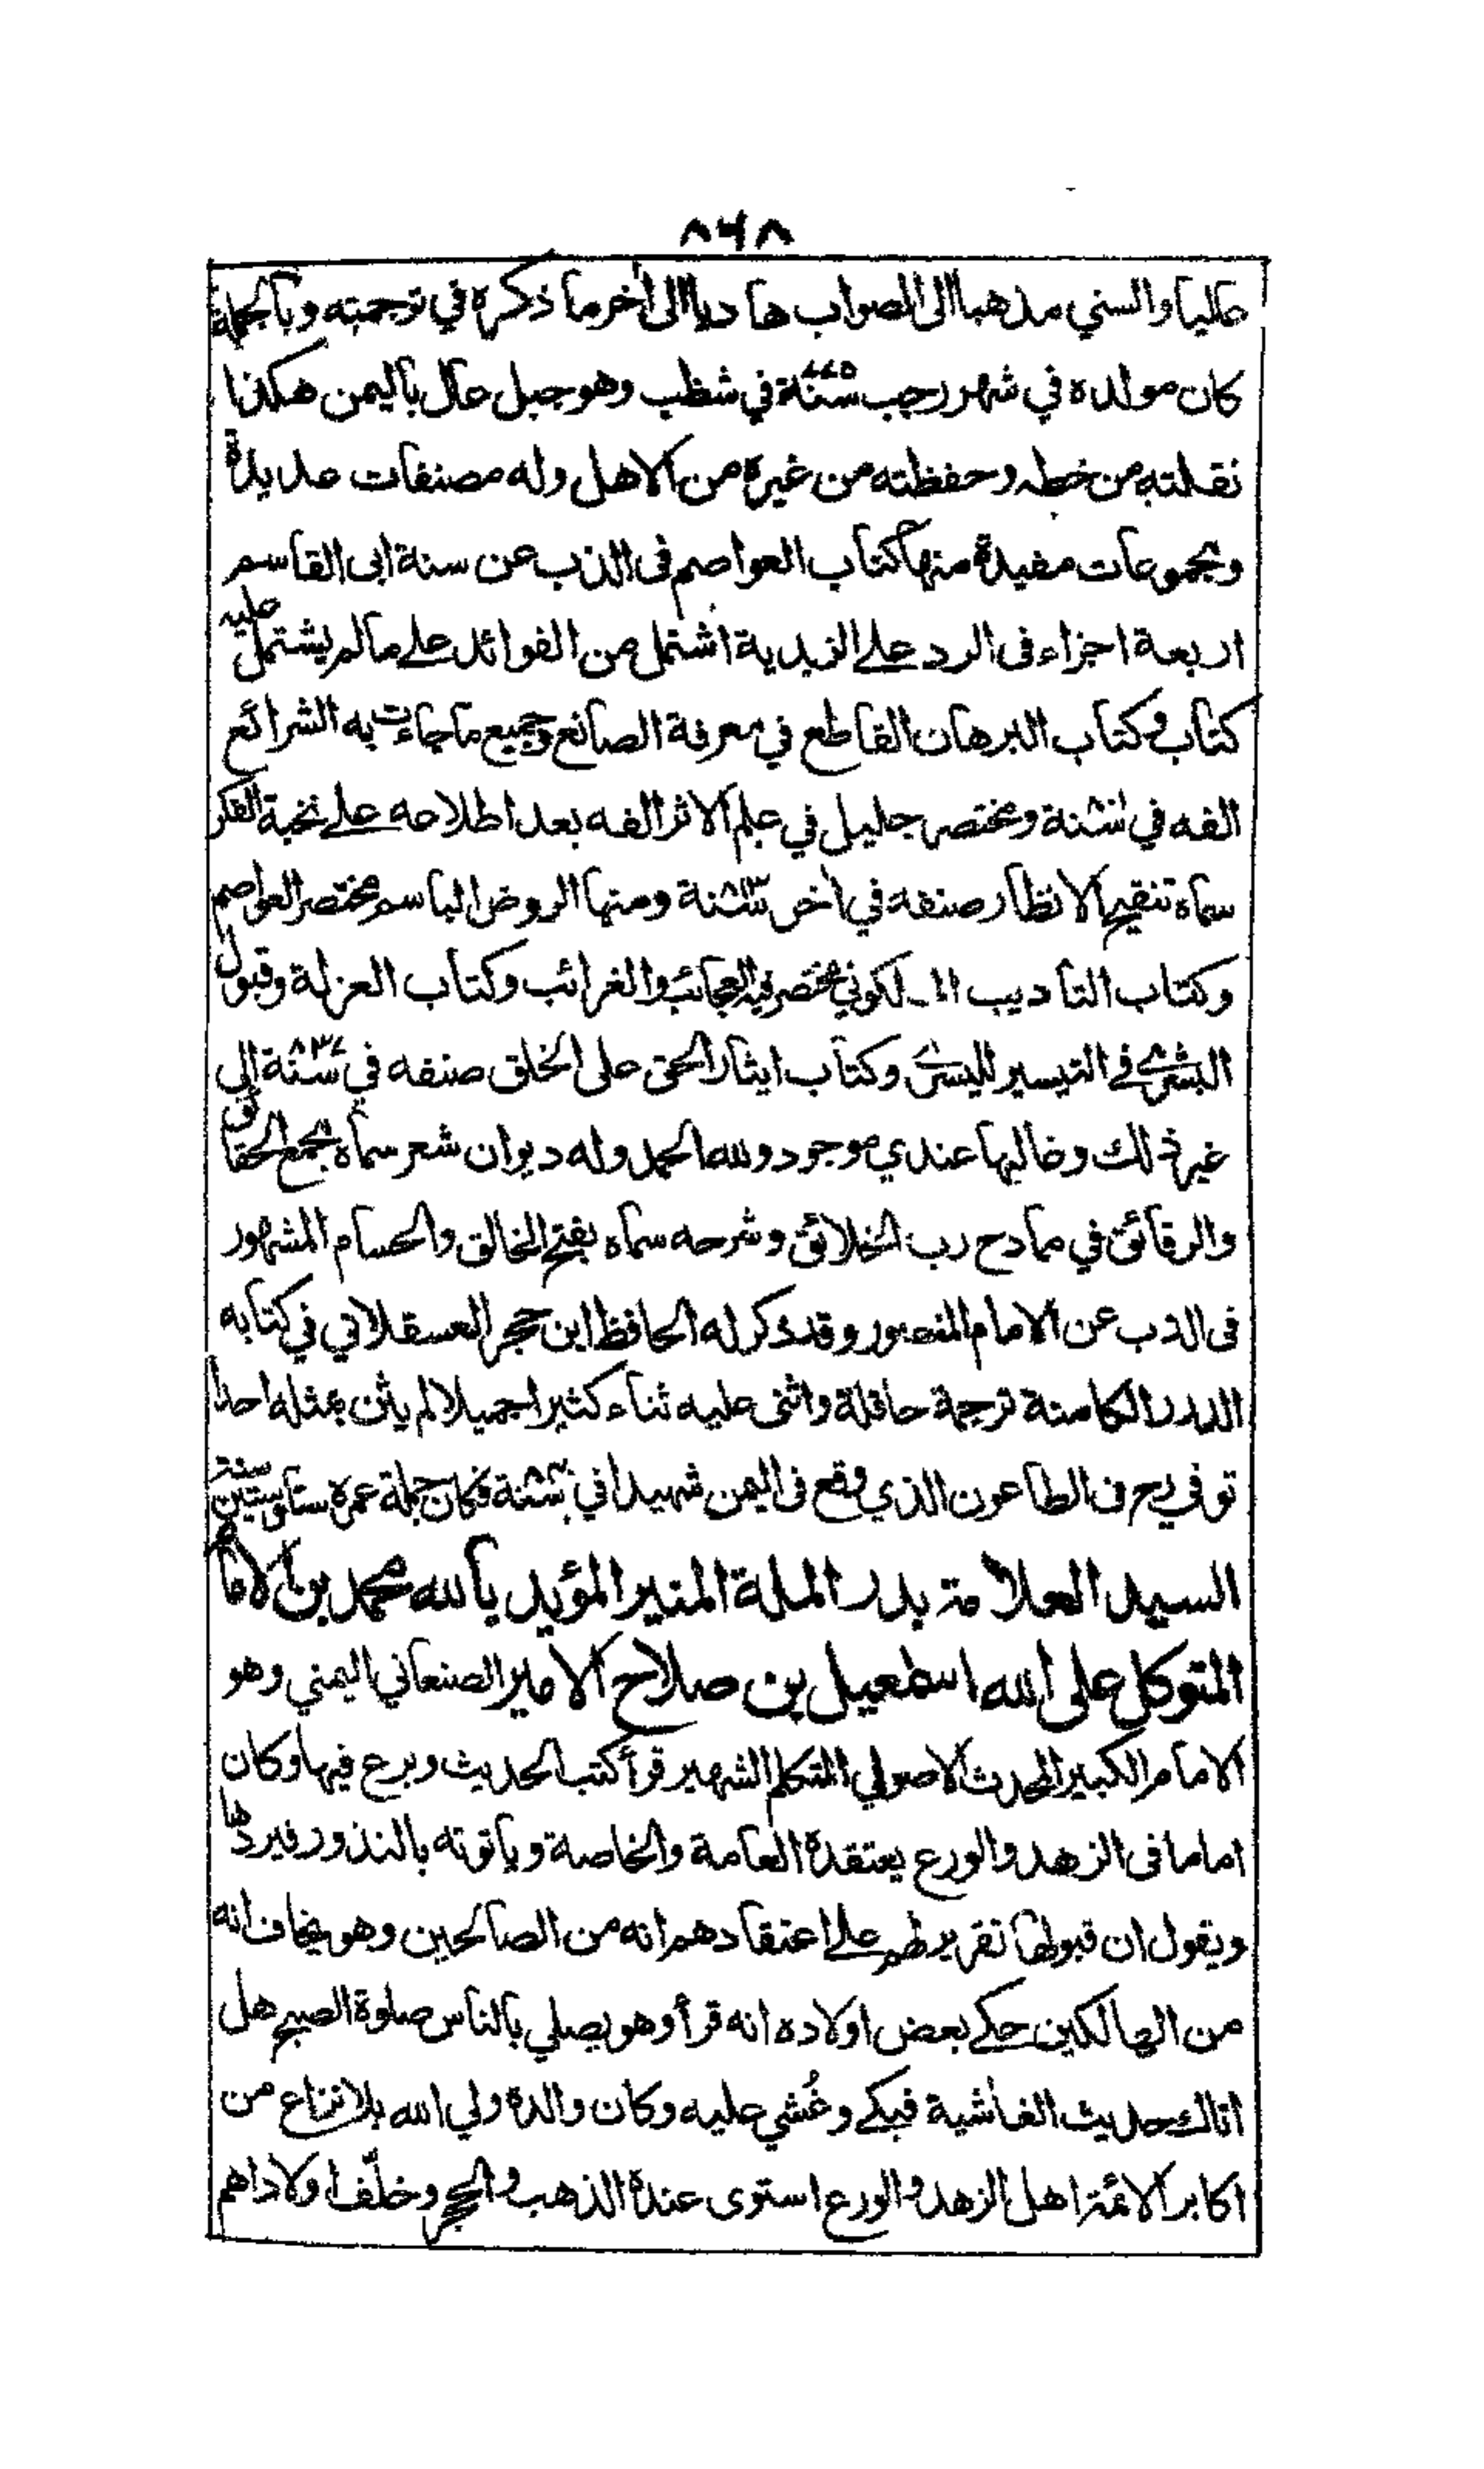 ٨٦٨
عليا والسني مذهبا الى الصواب هاديا الى اخر ما ذكره في ترجمته وبالجملة
كان مولده في شهر رجب ٧٧٥سنة في شظب وهو جبل عال باليمن هكذا
نقلته من خطه وحفظته من غيره من الاهل وله مصنفات عديدة
ومجموعات مفيدة منها كتاب العواصم فى الذب عن سنة ابى القاسم
اربعة اجزاء فى الرد على الزيدية اشتمل من الفوائد على مالم يشتمل عليه
كتاب وكتاب البرهان القاطع في معرفة الصانع وجميع ما جاءت به الشرائع
الفه في سنة ومختصر جليل في علم الاثر الفه بعد اطلاعه على نخبة الفكر
سماه تنقيح الانظار صنفه في اخر سنة ومنها الروض الباسم مختصر العواصم
وكتاب التأديب الملكوتي مختصر فيه العجائب والغرائب وكتاب العزلة وقبول
البشرى في التيسير لليسرى وكتاب ايثار الحق على الخلق صنفه في ٨٣٧سنة الى
غير ذلك وغالبها عندي موجود ولله الحمد وله ديوان شعر سماه مجمع الحقائق
والرقائق في ممادح رب الخلائق وشرحه سماه بفتح الخالق والحسام المشهور
فى الذب عن الامام المنصور وقد ذكر له الحافظ ابن حجر العسقلاني في كتابه
الدرر الكامنة ترجمة حافلة واثنى عليه ثناء كثيرا جميلا لم يثن بمثله احدا
توفي رح فى الطاعون الذي وقع فى اليمن شهيدا في سنة فكان جملة عمره ستا وستين سنة
السيد العلامة بدر الملة المنير المؤيد بالله محمد بن الامام
المتوكل على الله اسمعيل بن صلاح الامير الصنعاني اليمني وهو
الامام الكبير المحدث الاصولي المتكلم الشهير قرأ كتب الحديث وبرع فيها وكان
اماما فى الزهد والورع يعتقده العامة والخاصة وياتوته بالنذور فيردها
ويقول ان قبولها تقرير لهم على اعتقادهم انه من الصالحين وهو يخاف انه
من الهالكين حكى بعض اولاده انه قرأ وهو يصلي بالناس صلوة الصبح هل
اتاك حديث الغاشية فبكى وغُشي عليه وكان والده ولي الله بلا نزاع من
اكابر الائمة اهل الزهد والورع استوى عنده الذهب والحجر وخلّف اولادا هم